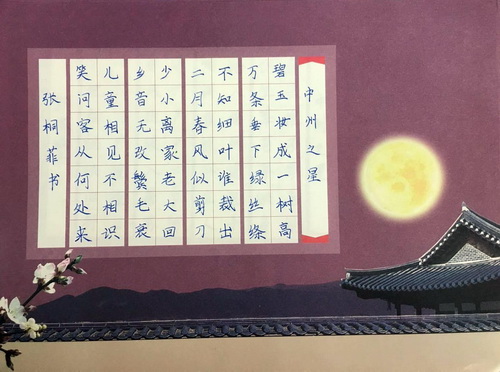 中州之星
碧玉妆成一树高
万条垂下绿丝绦
不知细叶谁裁出
二月春风似剪刀
少小离家老大回
乡音无改鬓毛衰
儿童相见不相识
笑问客从何处来
张桐菲书